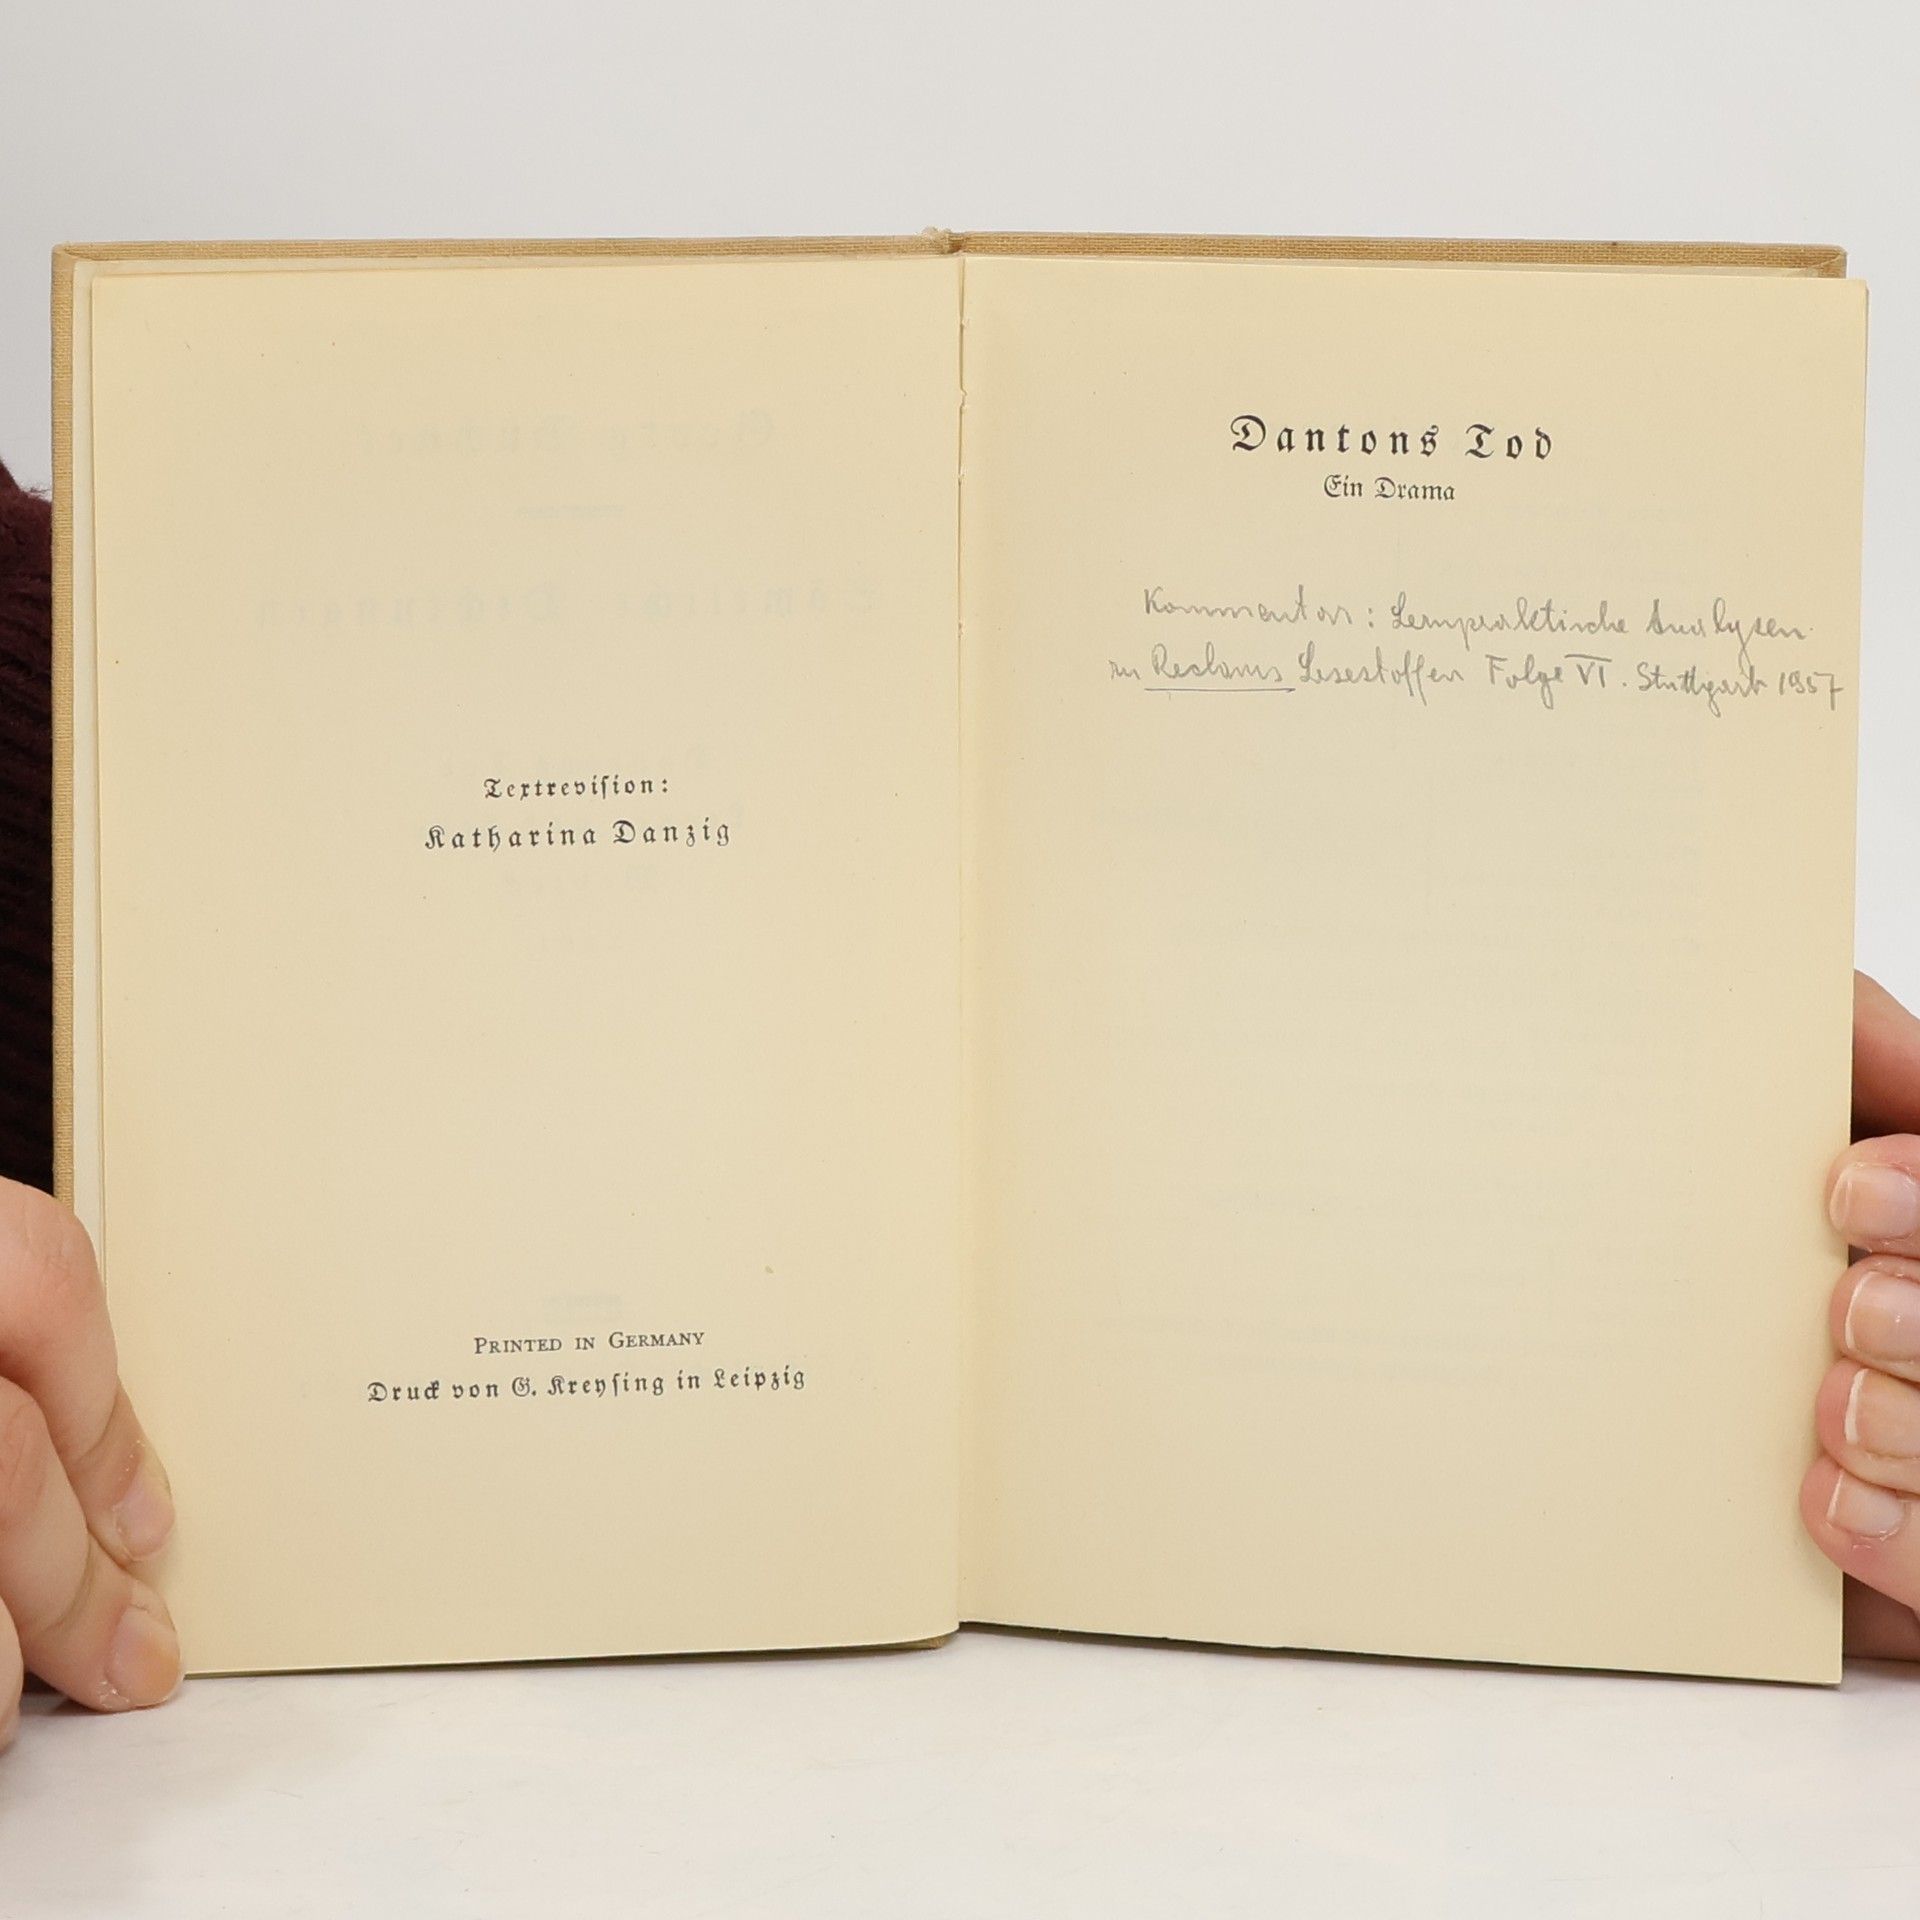 Textrevision:
Katharina Danzig
PRINTED IN GERMANY
Druck von G. Kreysing in Leipzig
Dantons Tod
Ein Drama
Kommentar: Lernpraktische Analysen
zu Reclams Lesestoffen Folge VI. Stuttgart 1957